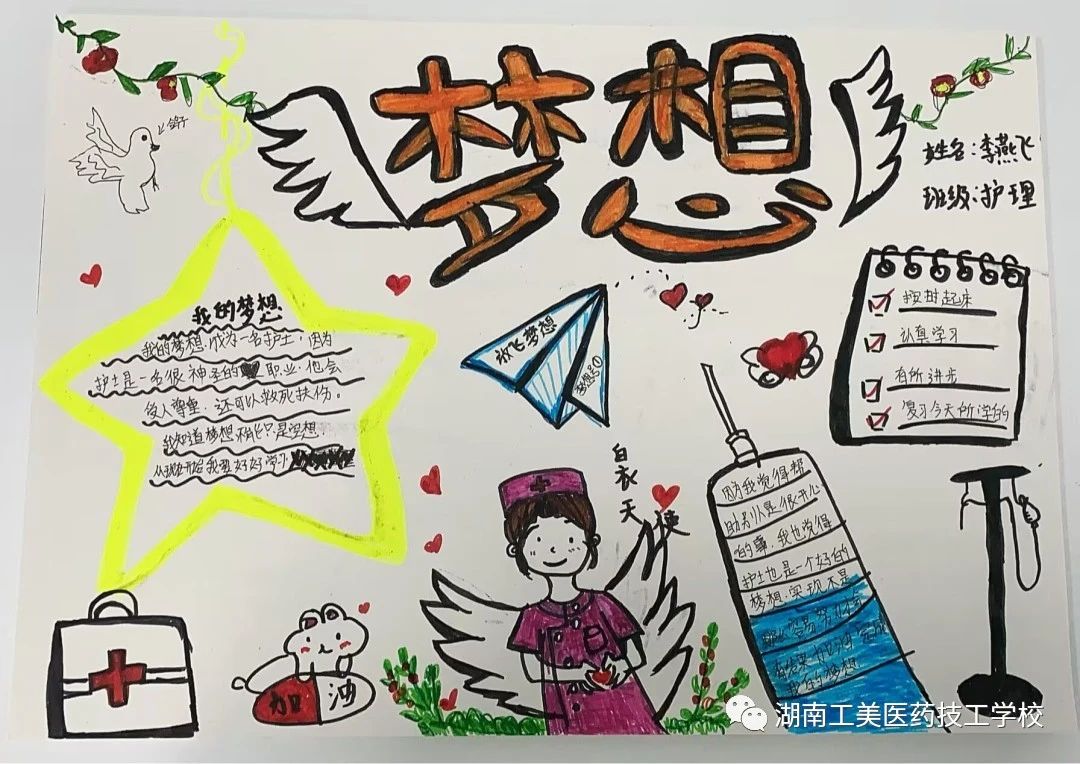 梦想
姓名:李燕飞
班级:护理
我的梦想
我的梦想,成为一名护士,因为
护士是一名很神圣的 职业.他会
受人尊重.还可以救死扶伤。
我知道梦想不能只是空想.
从现在开始我要好好学习
放飞梦想
按时起床
认真学习
有所进步
复习今天所学的
白衣天使
因为我觉得帮
助别人是很开心
的事,我也觉得
护士也是一个好的
梦想.实现不是
我的梦想
加油
湖南工美医药技工学校